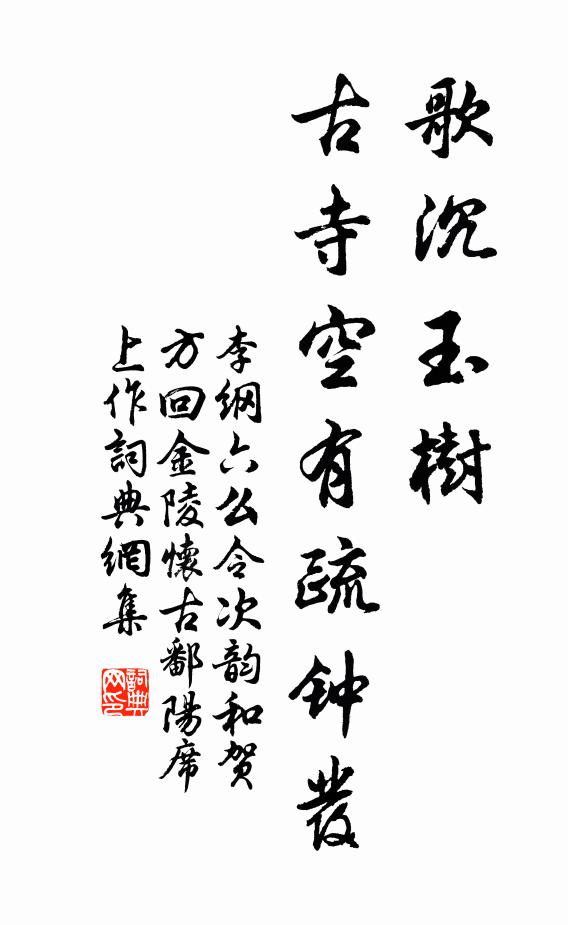 歌沉玉樹
古寺空有疏钟發
李纲六么令次韵和贺
方回金陵懷古鄱陽席
上作詞典網集
詞典
网印